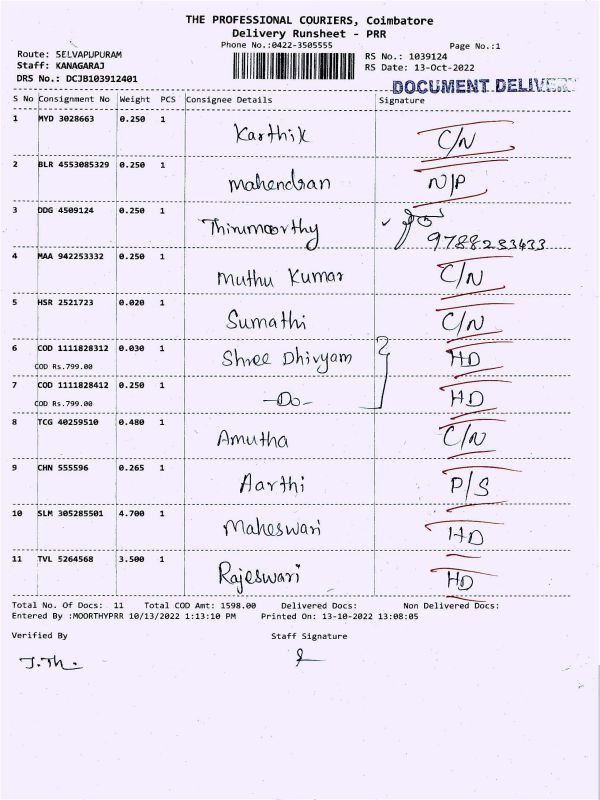 THE PROFESSIONAL COURIERS, Coimbatore
Delivery Runsheet - PRR
Phone No.:0422-3505555
Page No.:1
Route: SELVAPUPURAM
Staff: KANAGARAJ
DRS No.: DCJB103912401
RS No.: 1039124
RS Date: 13-Oct-2022
DOCUMENT DELIVERY
S No Consignment No Weight PCS Consignee Details Signature
1 MYD 3028663 0.250 1 Karthik C/N
2 BLR 4553085329 0.250 1 Mahendran N/P
3 DDG 4509124 0.250 1 Thirumoorthy 9788283433
4 MAA 942253332 0.250 1 Muthu Kumar C/N
5 HSR 2521723 0.020 1 Sumathi C/N
6 COD 1111828312 0.030 1 Shree Dhivyam HD
COD Rs.799.00
7 COD 1111828412 0.250 1 -Do- HD
COD Rs.799.00
8 TCG 40259510 0.480 1 Amutha C/N
9 CHN 555596 0.265 1 Aarthi P/S
10 SLM 305285501 4.700 1 Maheswari HD
11 TVL 5264568 3.500 1 Rajeswari HD
Total No. Of Docs: 11 Total COD Amt: 1598.00 Delivered Docs: Non Delivered Docs:
Entered By :MOORTHYPRR 10/13/2022 1:13:10 PM Printed On: 13-10-2022 13:08:05
Verified By Staff Signature
J.Th.